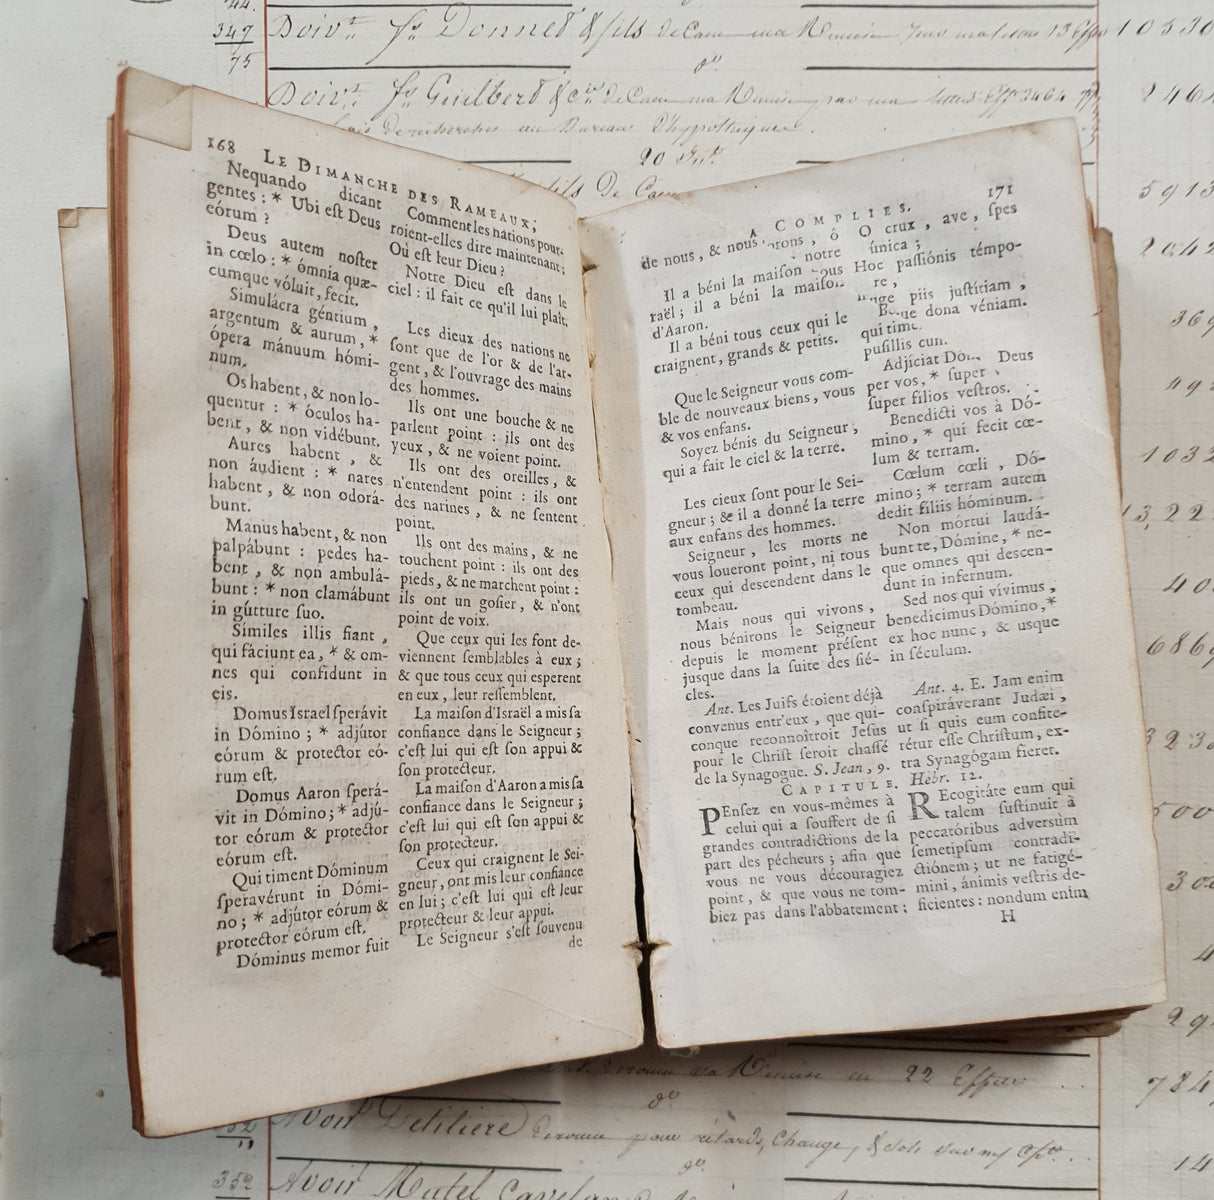 347
75
Donnet & fils de Caen
Guilbert & Cie de Caen ma Remise par ma lettre
au Bureau d'hypothèques.
20
fils De Caen
168 LE DIMANCHE DES RAMEAUX;
Nequando dicant
gentes : * Ubi est Deus
eórum ?
Deus autem noster
in cœlo : * ómnia quæ-
cumque vóluit, fecit.
Simulácra géntium,
argentum & aurum, *
ópera mánuum hómi-
num.
Os habent, & non lo-
quentur : * óculos ha-
bent, & non vidébunt.
Aures habent, &
non áudient : * nares
habent, & non odorá-
bunt.
Manus habent, & non
palpábunt : pedes ha-
bent, & non ambulá-
bunt : * non clamábunt
in gútture suo.
Símiles illis fiant,
qui fáciunt ea, * & om-
nes qui confidunt in
eis.
Domus Israel sperávit
in Dómino ; * adjútor
eórum & protector eó-
rum est.
Domus Aaron sperá-
vit in Dómino ; * adjú-
tor eórum & protector
eórum est.
Qui timent Dóminum
speravérunt in Dómi-
no ; * adjútor eórum &
protector eórum est.
Dóminus memor fuit
Comment les nations pour-
roient-elles dire maintenant :
Où est leur Dieu ?
Notre Dieu est dans le
ciel : il fait ce qu'il lui plaît.
Les dieux des nations ne
sont que de l'or & de l'ar-
gent, & l'ouvrage des mains
des hommes.
Ils ont une bouche & ne
parlent point : ils ont des
yeux, & ne voient point.
Ils ont des oreilles, &
n'entendent point : ils ont
des narines, & ne sentent
point.
Ils ont des mains, & ne
touchent point : ils ont des
pieds, & ne marchent point :
ils ont un gosier, & n'ont
point de voix.
Que ceux qui les font de-
viennent semblables à eux ;
& que tous ceux qui esperent
en eux, leur ressemblent.
La maison d'Israël a mis sa
confiance dans le Seigneur ;
c'est lui qui est son appui &
son protecteur.
La maison d'Aaron a mis sa
confiance dans le Seigneur ;
c'est lui qui est son appui &
son protecteur.
Ceux qui craignent le Sei-
gneur, ont mis leur confiance
en lui ; c'est lui qui est leur
protecteur & leur appui.
Le Seigneur s'est souvenu
de
A COMPLIES. 171
de nous, & nous
notre
Il a béni la maison
raël ; il a béni la maison
d'Aaron.
Il a béni tous ceux qui le
craignent, grands & petits.
Que le Seigneur vous com-
ble de nouveaux biens, vous
& vos enfans.
Soyez bénis du Seigneur,
qui a fait le ciel & la terre.
Les cieux sont pour le Sei-
gneur ; & il a donné la terre
aux enfans des hommes.
Seigneur, les morts ne
vous loueront point, ni tous
ceux qui descendent dans le
tombeau.
Mais nous qui vivons,
nous bénirons le Seigneur
depuis le moment présent
jusque dans la suite des sié-
cles.
Ant. Les Juifs étoient déjà
convenus entr'eux, que qui-
conque reconnoîtroit Jesus
pour le Christ seroit chassé
de la Synagogue. S. Jean, 9.
ô O crux, ave, spes
única ;
Hoc passiónis témpo-
re,
piis justítiam,
dona véniam.
qui
pusillis cum
Adjíciat Deus
per vos, * super
super filios vestros.
Benedicti vos à Dó-
mino, * qui fecit cœ-
lum & terram.
Cœlum cœli, Dó-
mino ; * terram autem
dedit filiis hóminum.
Non mórtui laudá-
bunt te, Dómine, * ne-
que omnes qui descen-
dunt in infernum.
Sed nos qui vívimus,
benedícimus Dómino, *
ex hoc nunc, & usque
in séculum.
Ant. 4. E. Jam enim
conspiráverant Judæi,
ut si quis eum confite-
rétur esse Christum, ex-
tra Synagógam fieret.
CAPITULE. Hébr. 12.
PEnsez en vous-mêmes à
celui qui a souffert de si
grandes contradictions de la
part des pécheurs ; afin que
vous ne vous découragiez
point, & que vous ne tom-
biez pas dans l'abbatement :
REcogitáte eum qui
talem sustinuit à
peccatóribus adversùm
semetipsum contradi-
ctiónem ; ut ne fatigé-
mini, ánimis vestris de-
ficientes : nondum enim
H
10530
5913
2042
369
492
1032
40
686
500
784
14
en 22 Effets
Avoir Detiliere pour retards, Change,
352
Avoir